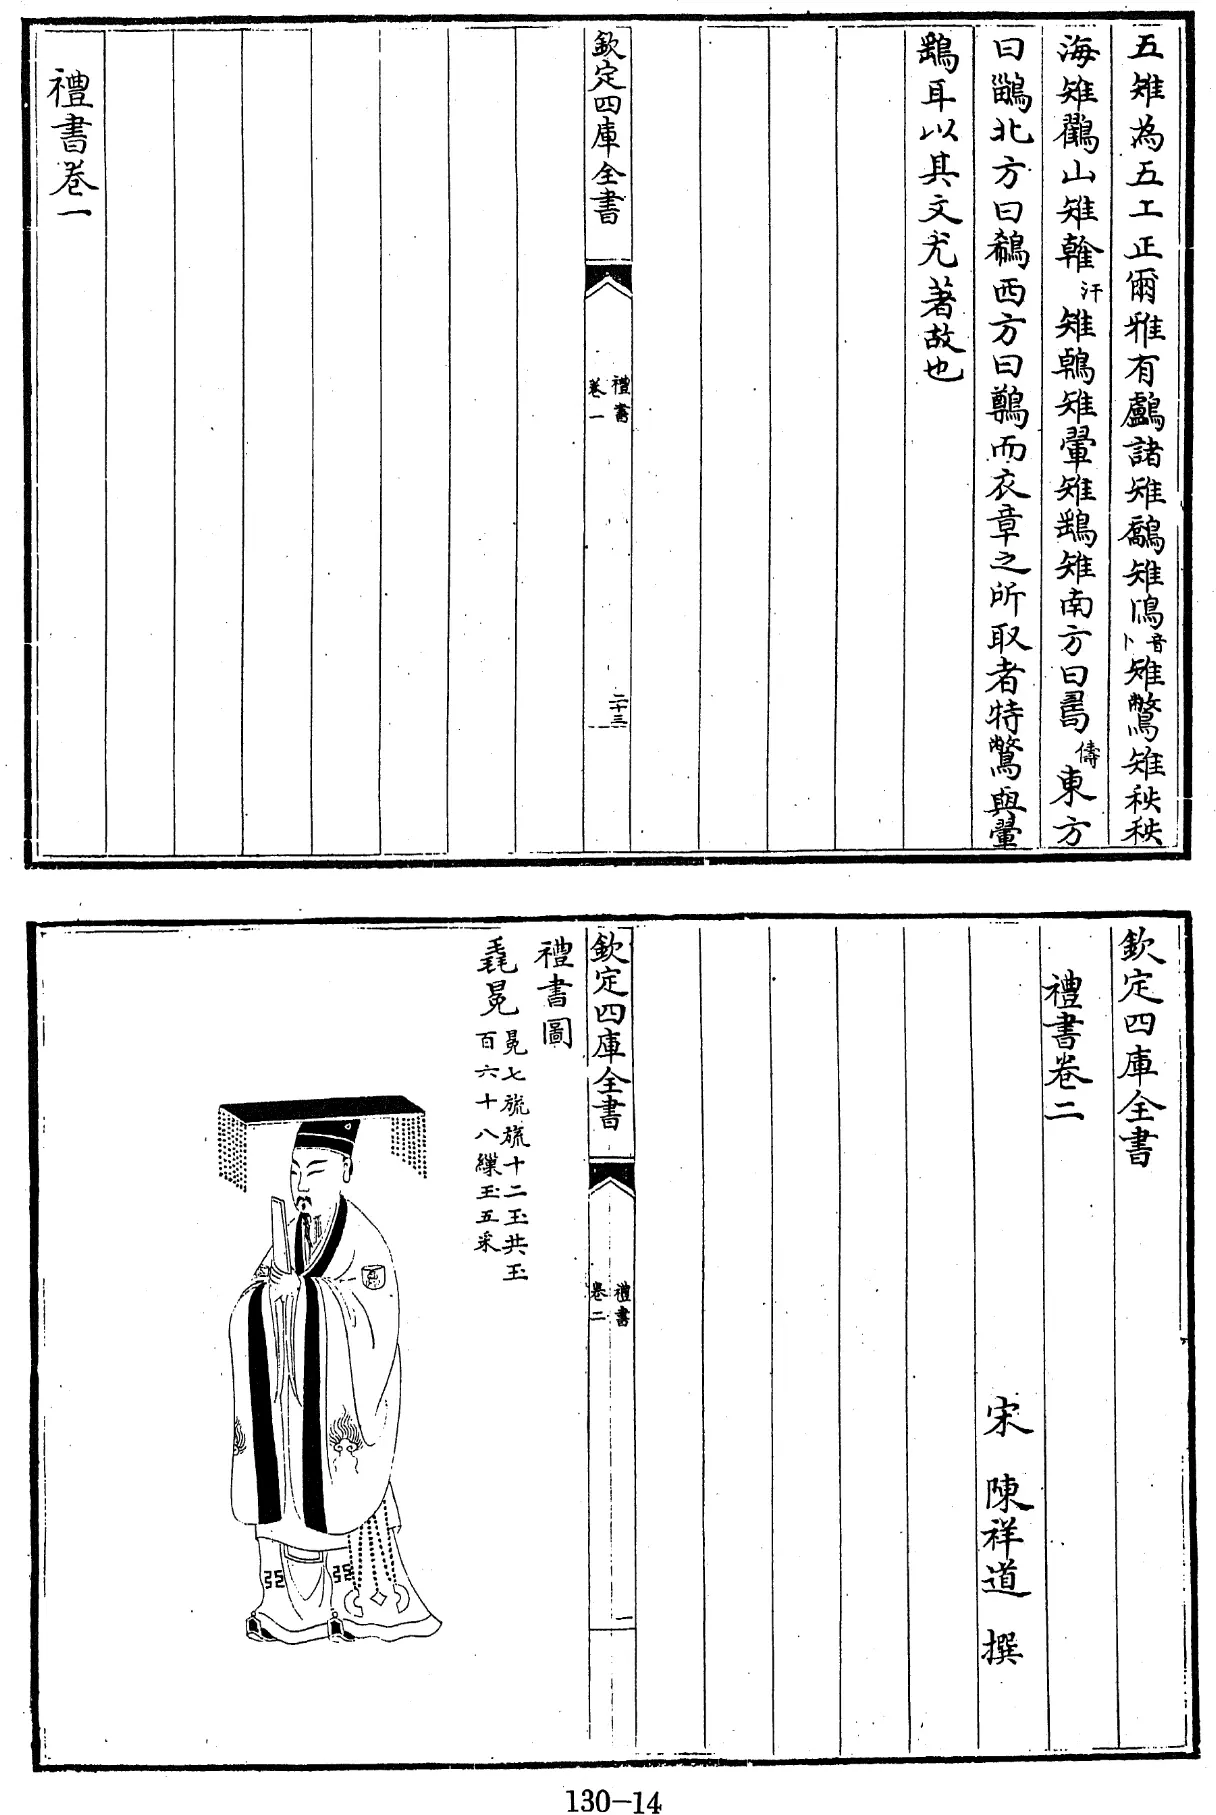 五雉為五工正爾雅有鸕諸雉鷮雉鳪音卜雉鷩雉秩秩
海雉鸐山雉雗汗雉鵫雉翬雉鷂雉南方曰𠷎儔東方
曰鶅北方曰鵗西方曰鷷而衣章之所取者特鷩與翬
鷂耳以其文尤著故也
欽定四庫全書
禮書
卷一
二十三
禮書卷一
欽定四庫全書
禮書卷二
宋 陳祥道 撰
欽定四庫全書
禮書
卷二
一
禮書圖
毳冕
冕七旒旒十二玉共玉
百六十八繅玉五采
130-14